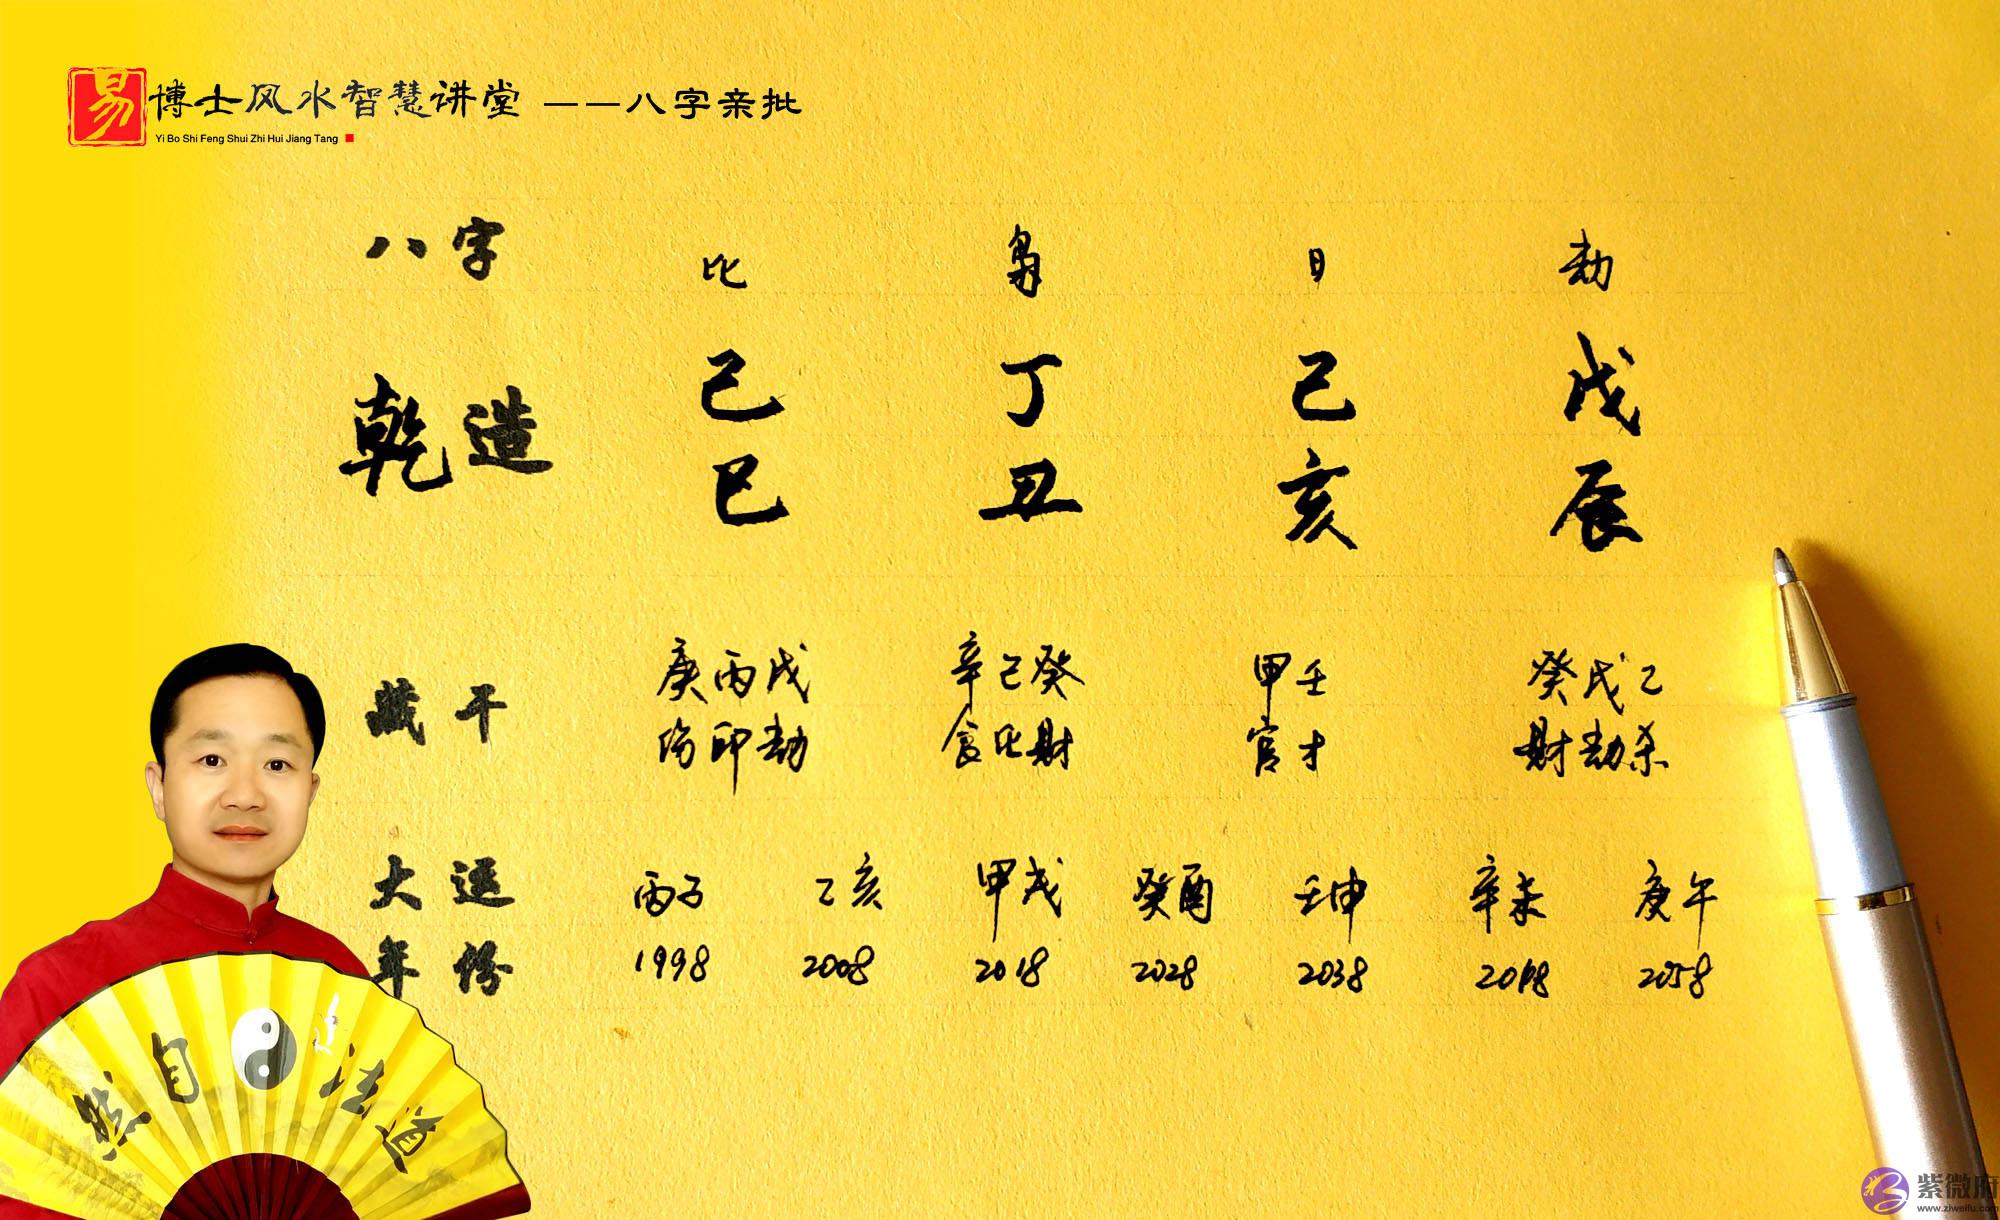 易博士风水智慧讲堂 ——八字亲批
Yi Bo Shi Feng Shui Zhi Hui Jiang Tang
八字 比 枭 日 劫
乾造 己 丁 己 戊
巳 丑 亥 辰
藏干 庚丙戊 辛己癸 甲壬 癸戊乙
伤印劫 食比财 官才 财劫杀
大运 丙子 乙亥 甲戌 癸酉 壬申 辛未 庚午
年份 1998 2008 2018 2028 2038 2048 2058
道法自然
紫微府
www.ziweifu.com